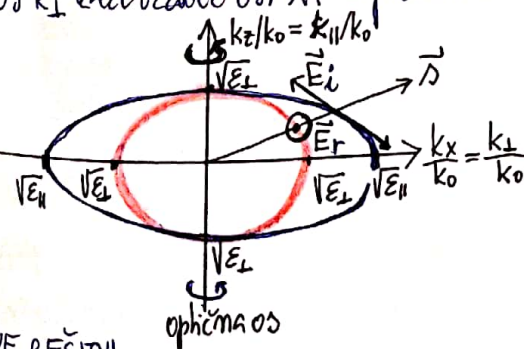 k_z/k_0 = k_{||}/k_0
√ε_⊥ E⃗_i s⃗
E⃗_r
k_x/k_0 = k_⊥/k_0
√ε_{||} √ε_⊥ √ε_⊥ √ε_{||}
√ε_⊥
optična os